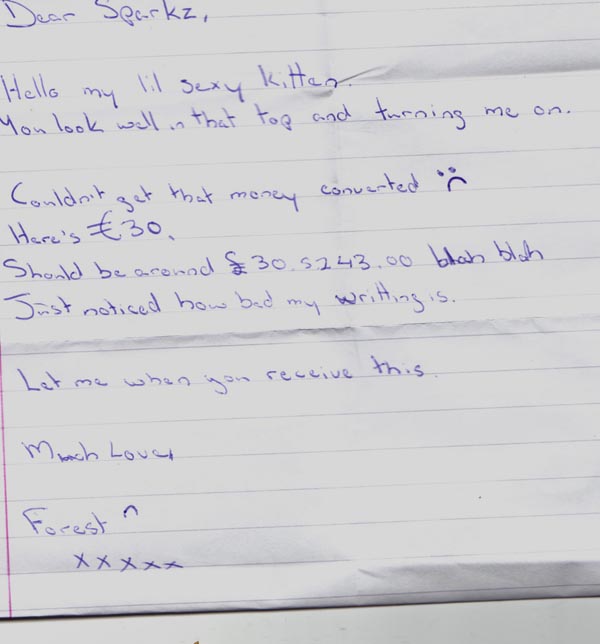 Dear Sparkz,
Hello my lil sexy kitten.
You look well in that top and turning me on.
Couldn't get that money converted :(
Here's €30.
Should be around £30.5243.00 blah blah
Just noticed how bad my writting is.
Let me when you receive this.
Much Love,
Forest ^
xxxxx